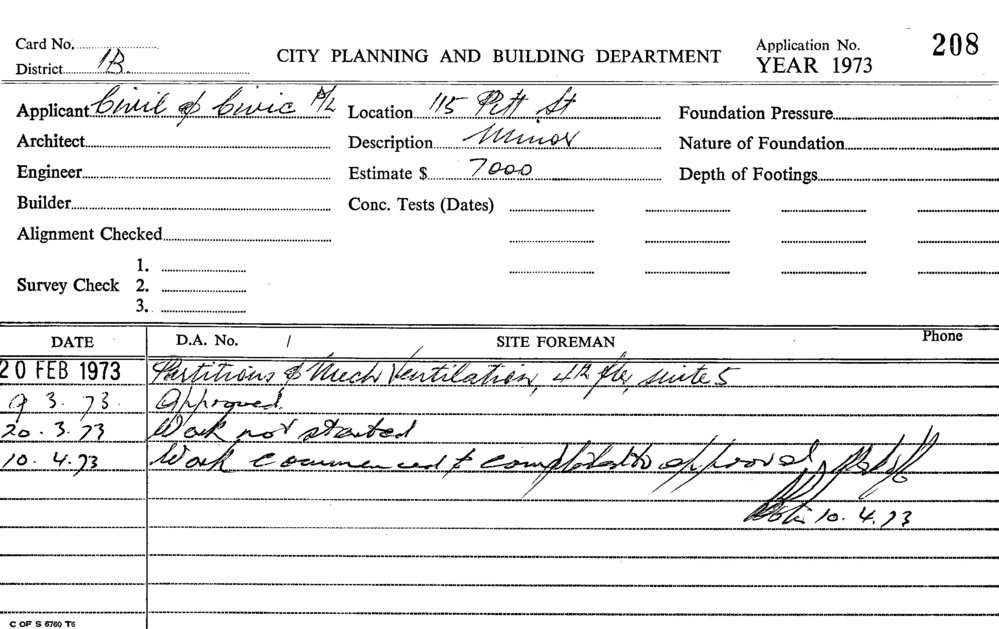 Card No.
CITY PLANNING AND BUILDING DEPARTMENT
Application No. 208
District 1B.
YEAR 1973
Applicant Civil & Civic P/L Location 115 Pitt St Foundation Pressure
Architect Description Minor Nature of Foundation
Engineer Estimate $ 7000 Depth of Footings
Builder Conc. Tests (Dates)
Alignment Checked
1.
Survey Check 2.
3.
DATE D.A. No. / SITE FOREMAN Phone
20 FEB 1973 Partitions & Mech Ventilation, 4th flr, suite 5
9 3. 73. Approved.
20.3.73 Work not started
10.4.73 Work commenced & completed to approval,
10.4.73
C OF S 6760 T6